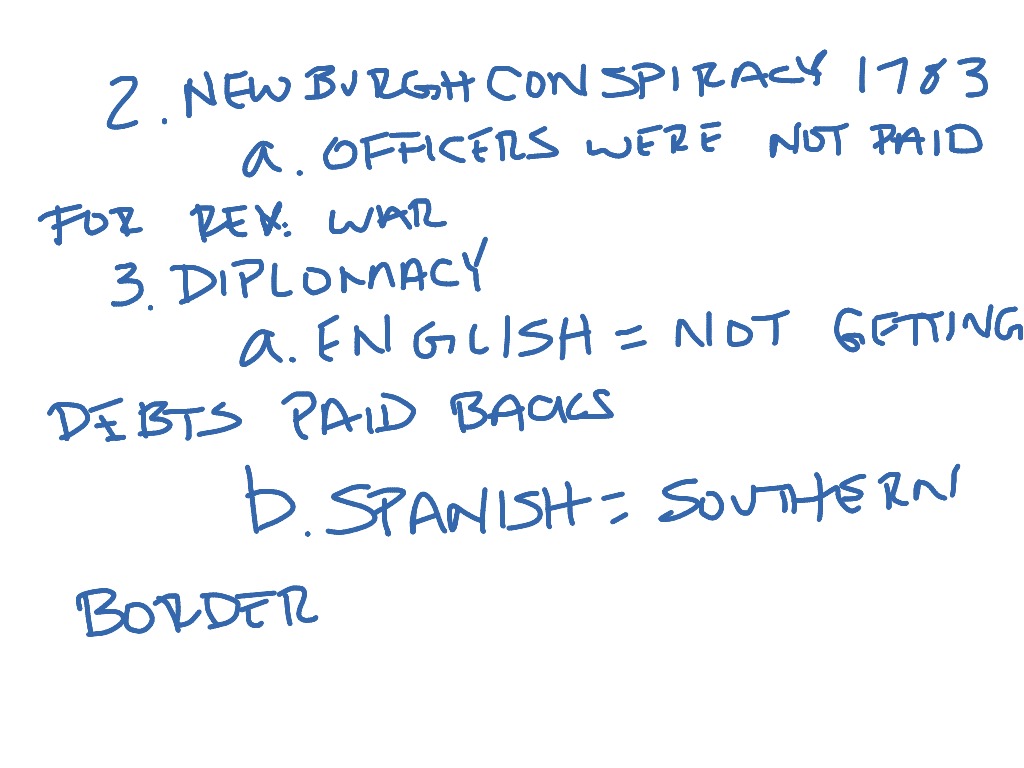 2. NEWBURGH CONSPIRACY 1783
a. OFFICERS WERE NOT PAID
FOR REV. WAR
3. DIPLOMACY
a. ENGLISH = NOT GETTING
DEBTS PAID BACKS
b. SPANISH = SOUTHERN
BORDER